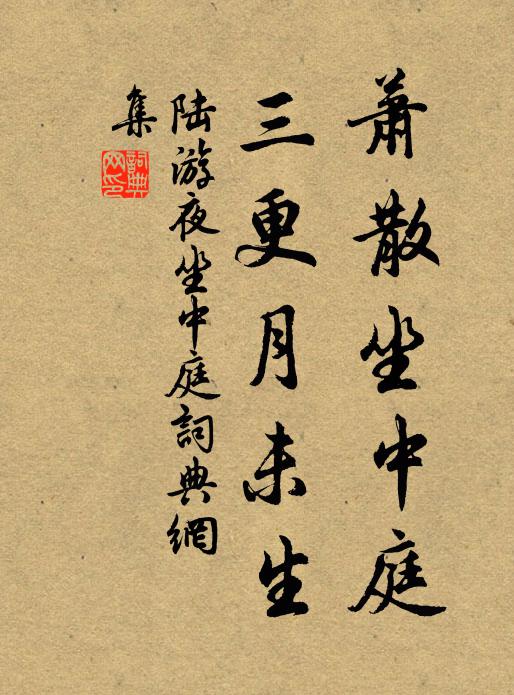 蕭散坐中庭
三更月未生
陆游夜坐中庭詞典網
集
詞典
网印